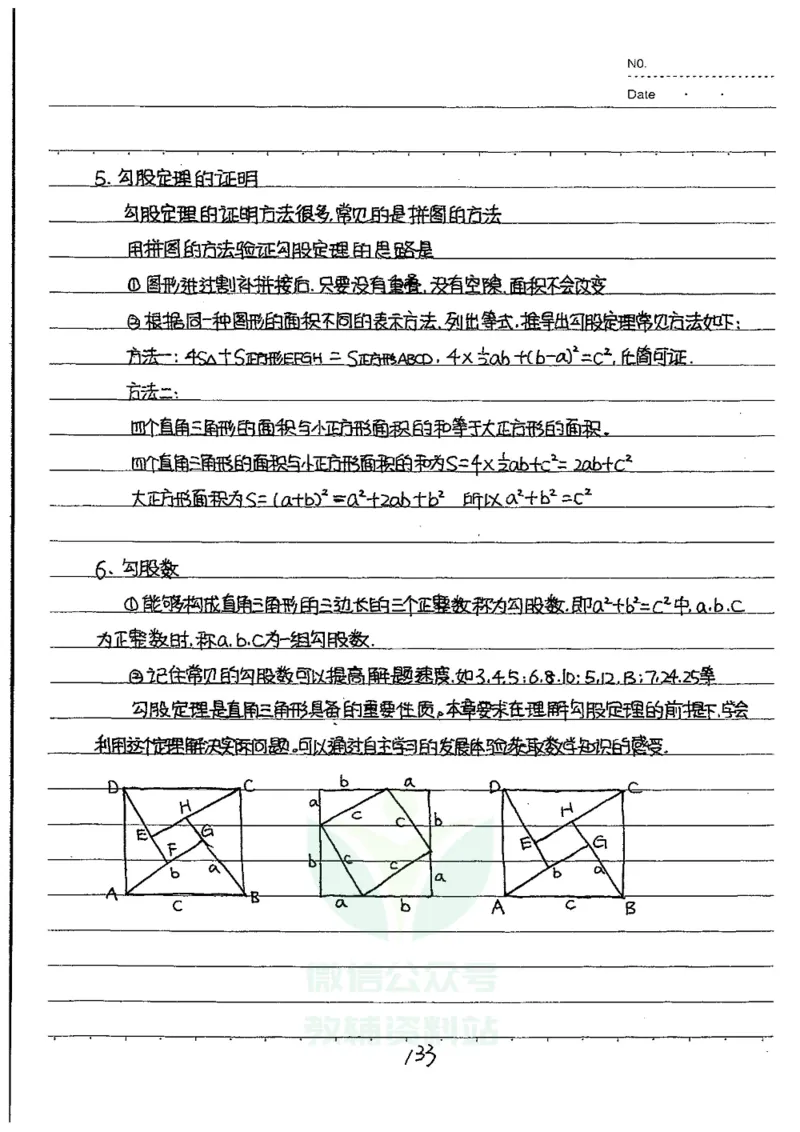 NO.
Date
5. 勾股定理的证明
勾股定理的证明方法很多,常见的是拼图的方法
用拼图的方法验证勾股定理的思路是
① 图形进过割补拼接后.只要没有重叠,没有空隙.面积不会改变
②根据同一种图形的面积不同的表示方法,列出等式,推导出勾股定理常见方法如下:
方法一: 4S△+S正方形EFGH = S正方形ABCD, 4×½ab+(b-a)²=c², 化简可证.
方法二:
四个直角三角形的面积与小正方形面积的和等于大正方形的面积。
四个直角三角形的面积与小正方形面积的和为S=4×½ab+c²=2ab+c²
大正方形面积为S=(a+b)²=a²+2ab+b² 所以a²+b²=c²
6、勾股数
①能够构成直角三角形的三边长的三个正整数称为勾股数.即a²+b²=c²中,a.b.c
为正整数时,称a.b.c为一组勾股数.
②记住常见的勾股数可以提高解题速度.如3,4,5;6,8,10;5,12,13;7,24,25等
勾股定理是直角三角形具备的重要性质。本章要求在理解勾股定理的前提下,学会
利用这个定理解决实际问题。可以通过自主学习的发展体验获取数学知识的感受.
D C H E G F b a A B C
b a a c c b b c c a a b
D C H E G b a A C B
微信公众号
教辅资料站
133